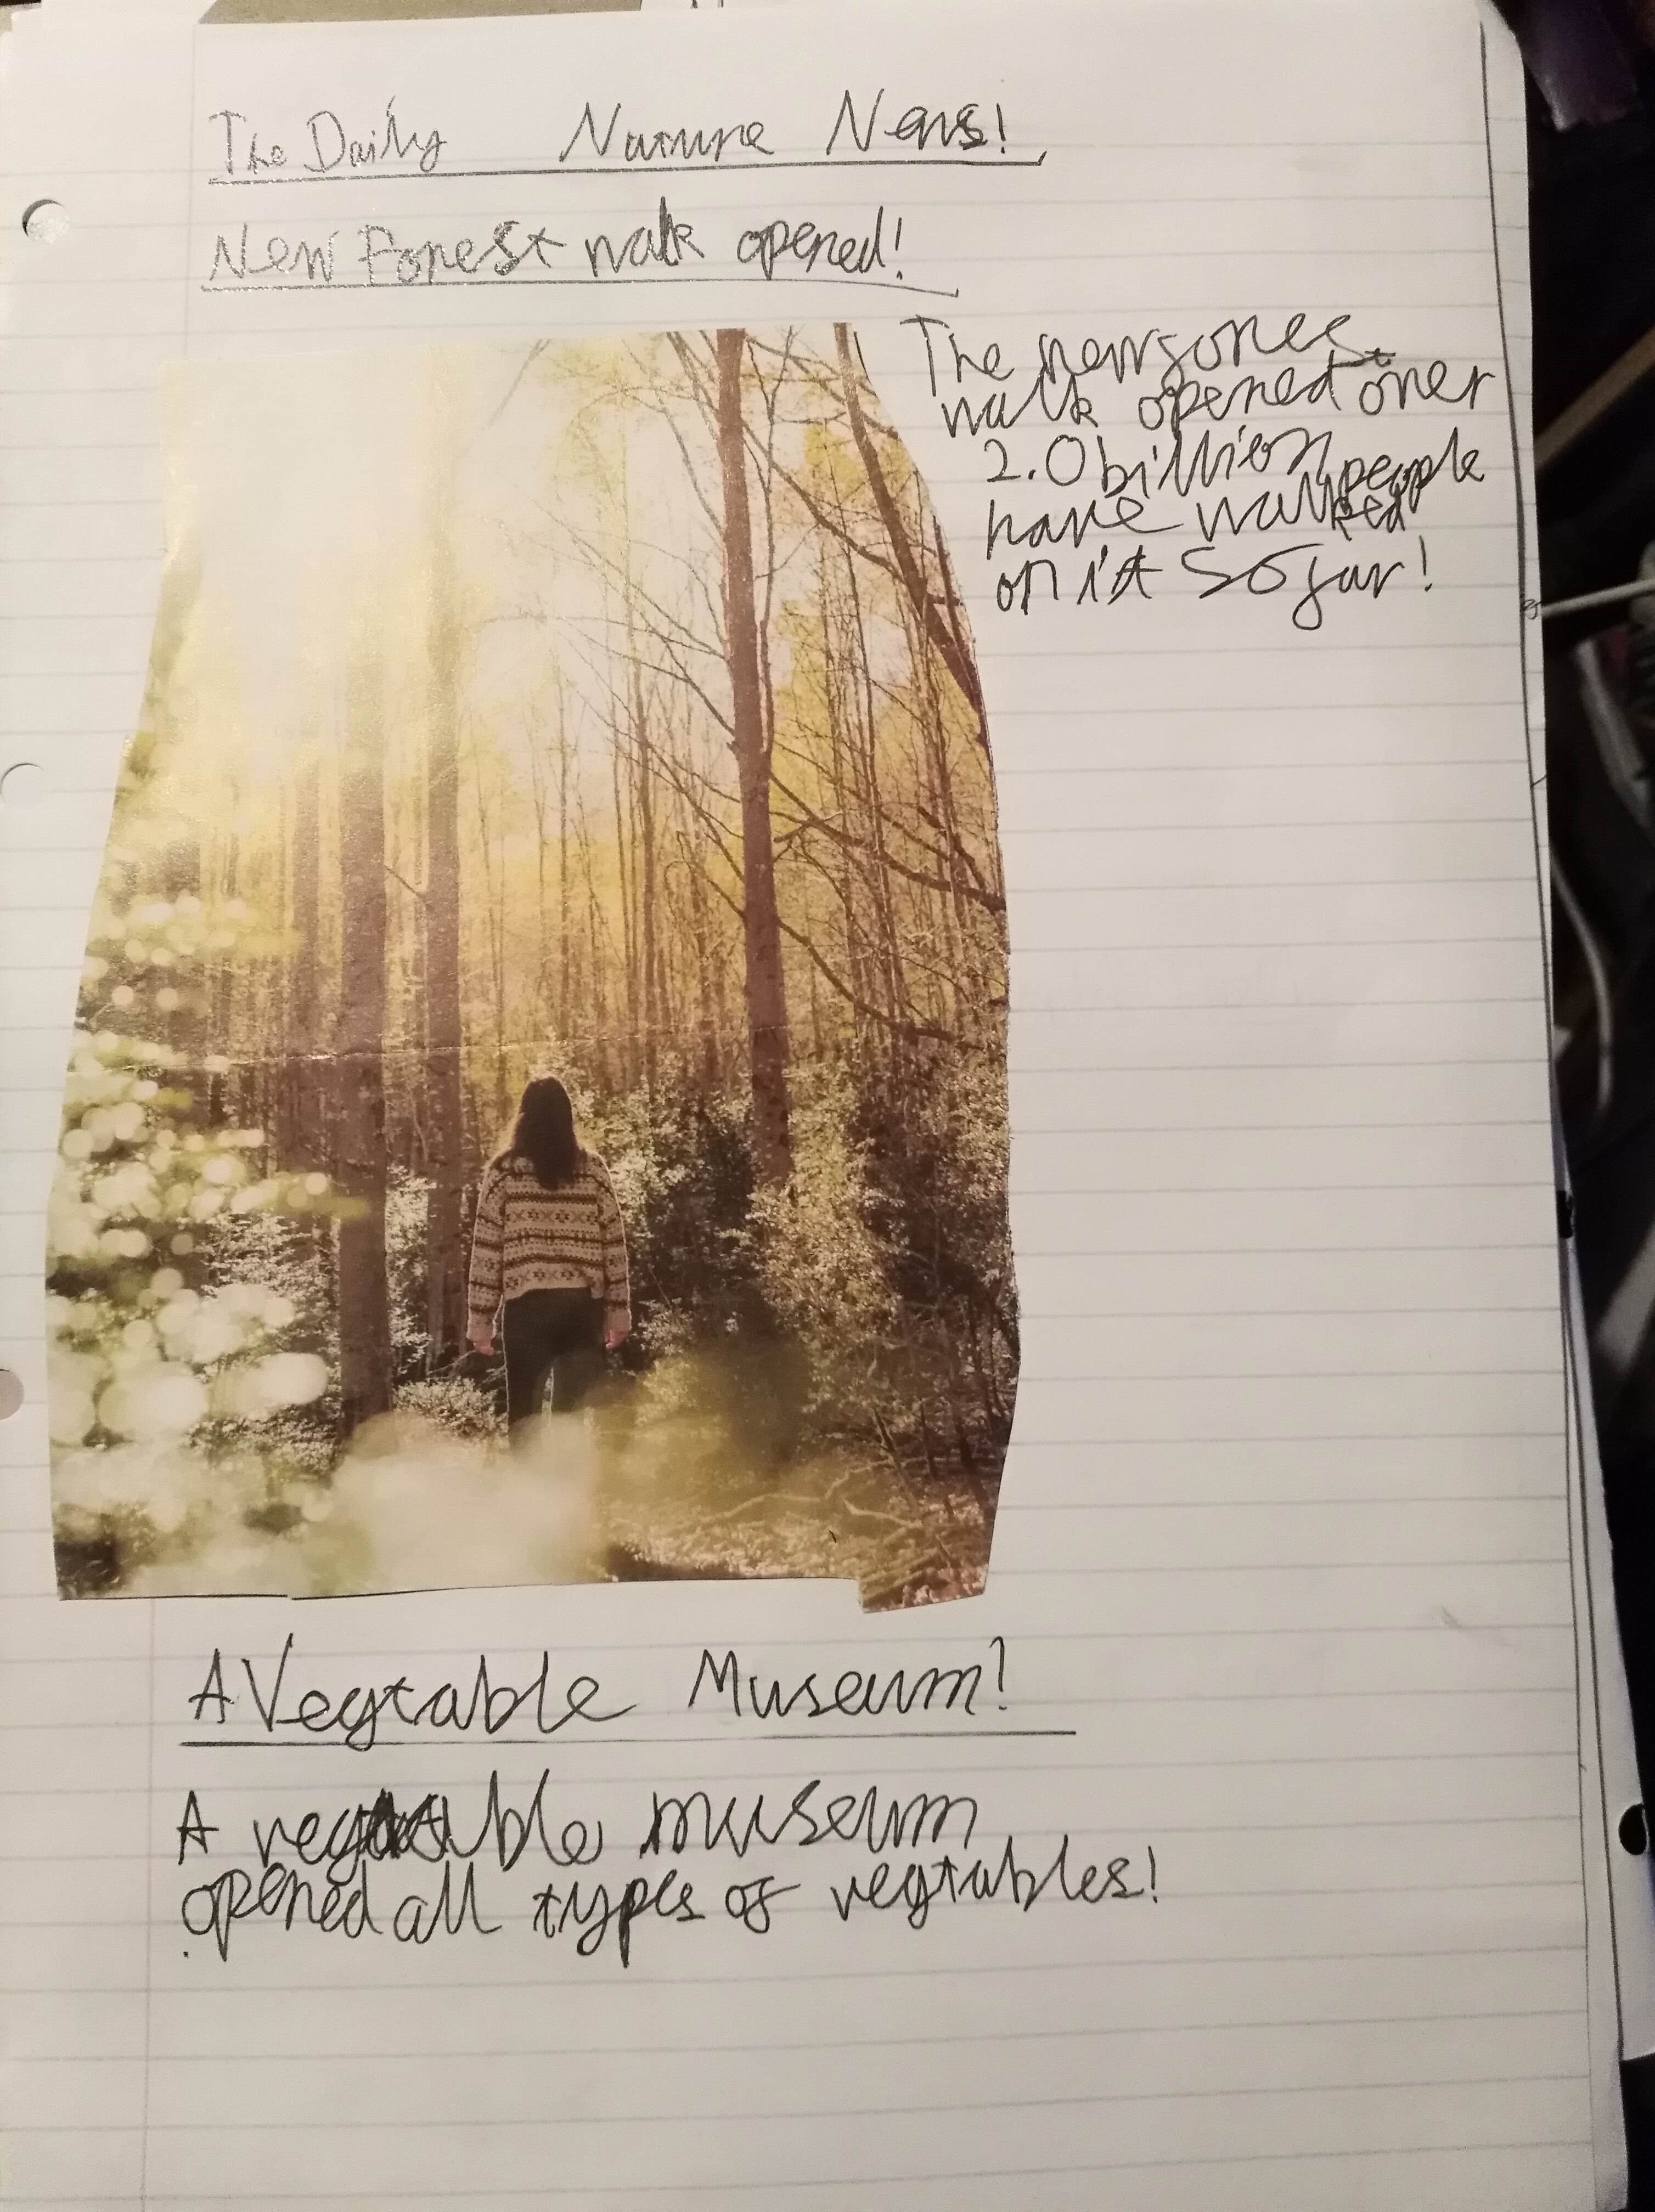 The Daily Nature News!
New Forest walk opened!
The new forest
walk opened over
2.0 billion people
have walked
on it so far!
A Vegtable Museum!
A vegtable museum
opened all types of vegtables!